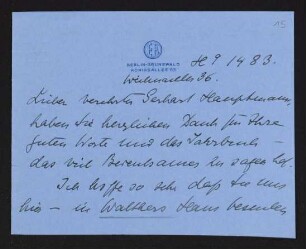 15
ER
BERLIN-GRUNEWALD
KÖNIGSALLEE
H 9 1483.
Weihnachten 36.
Lieber verehrter Gerhart Hauptmann,
haben Sie herzlichen Dank für Ihre
guten Worte und das Jahrbuch –
das viel zu sagen hat.
Ich hoffe so sehr daß Sie uns
hier – in Walthers Haus besuchen